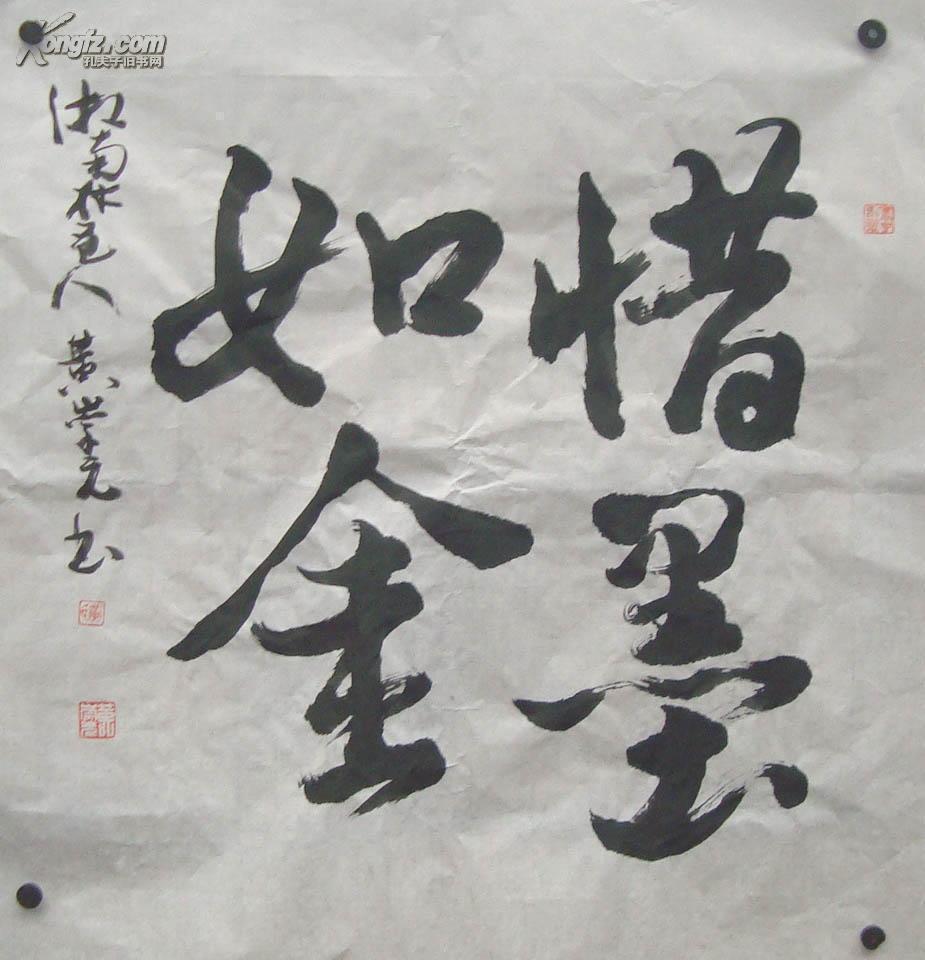 惜墨
如金
湘南林邑人 黄崇元书
Kongfz.com
孔夫子旧书网